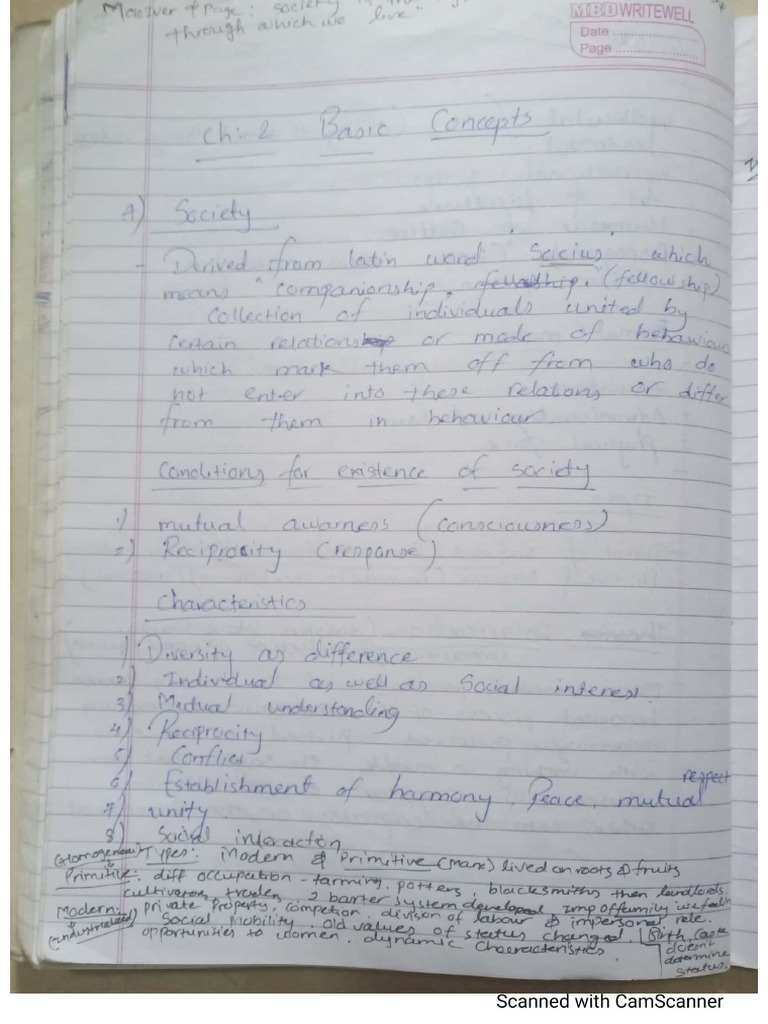 MacIver & Page: society is the
through which we live"
MBD WRITEWELL
Date ....................
Page ....................
Ch:2 Basic Concepts
A) Society
- Derived from latin word "Socius" which
means "companionship, fellowship." (fellowship)
Collection of individuals united by
certain relations or mode of behaviour
which mark them off from who do
not enter into these relations or differ
from them in behaviour
Conditions for existence of society
1) mutual awarness (consciousness)
2) Reciprocity (response)
Characteristics
1) Diversity as difference
2) Individual as well as Social interest.
3) Mutual understanding
4) Reciprocity
5) Conflict
6) Establishment of harmony, Peace, mutual respect
7) unity.
8) Social interaction
(Homogeneous) Types: Modern & Primitive (Marx) lived on roots & fruits
Primitive: diff occupation - farming, potters, blacksmiths then landlords
cultivators, traders, barter system developed imp of family we feeling
Modern: private Property, competion, division of labour & impersonal rele.
(industrialised) Social Mobility, old values of status changed. Birth, Caste doesn't determine status.
opportunities to women, dynamic Characteristics.
Scanned with CamScanner